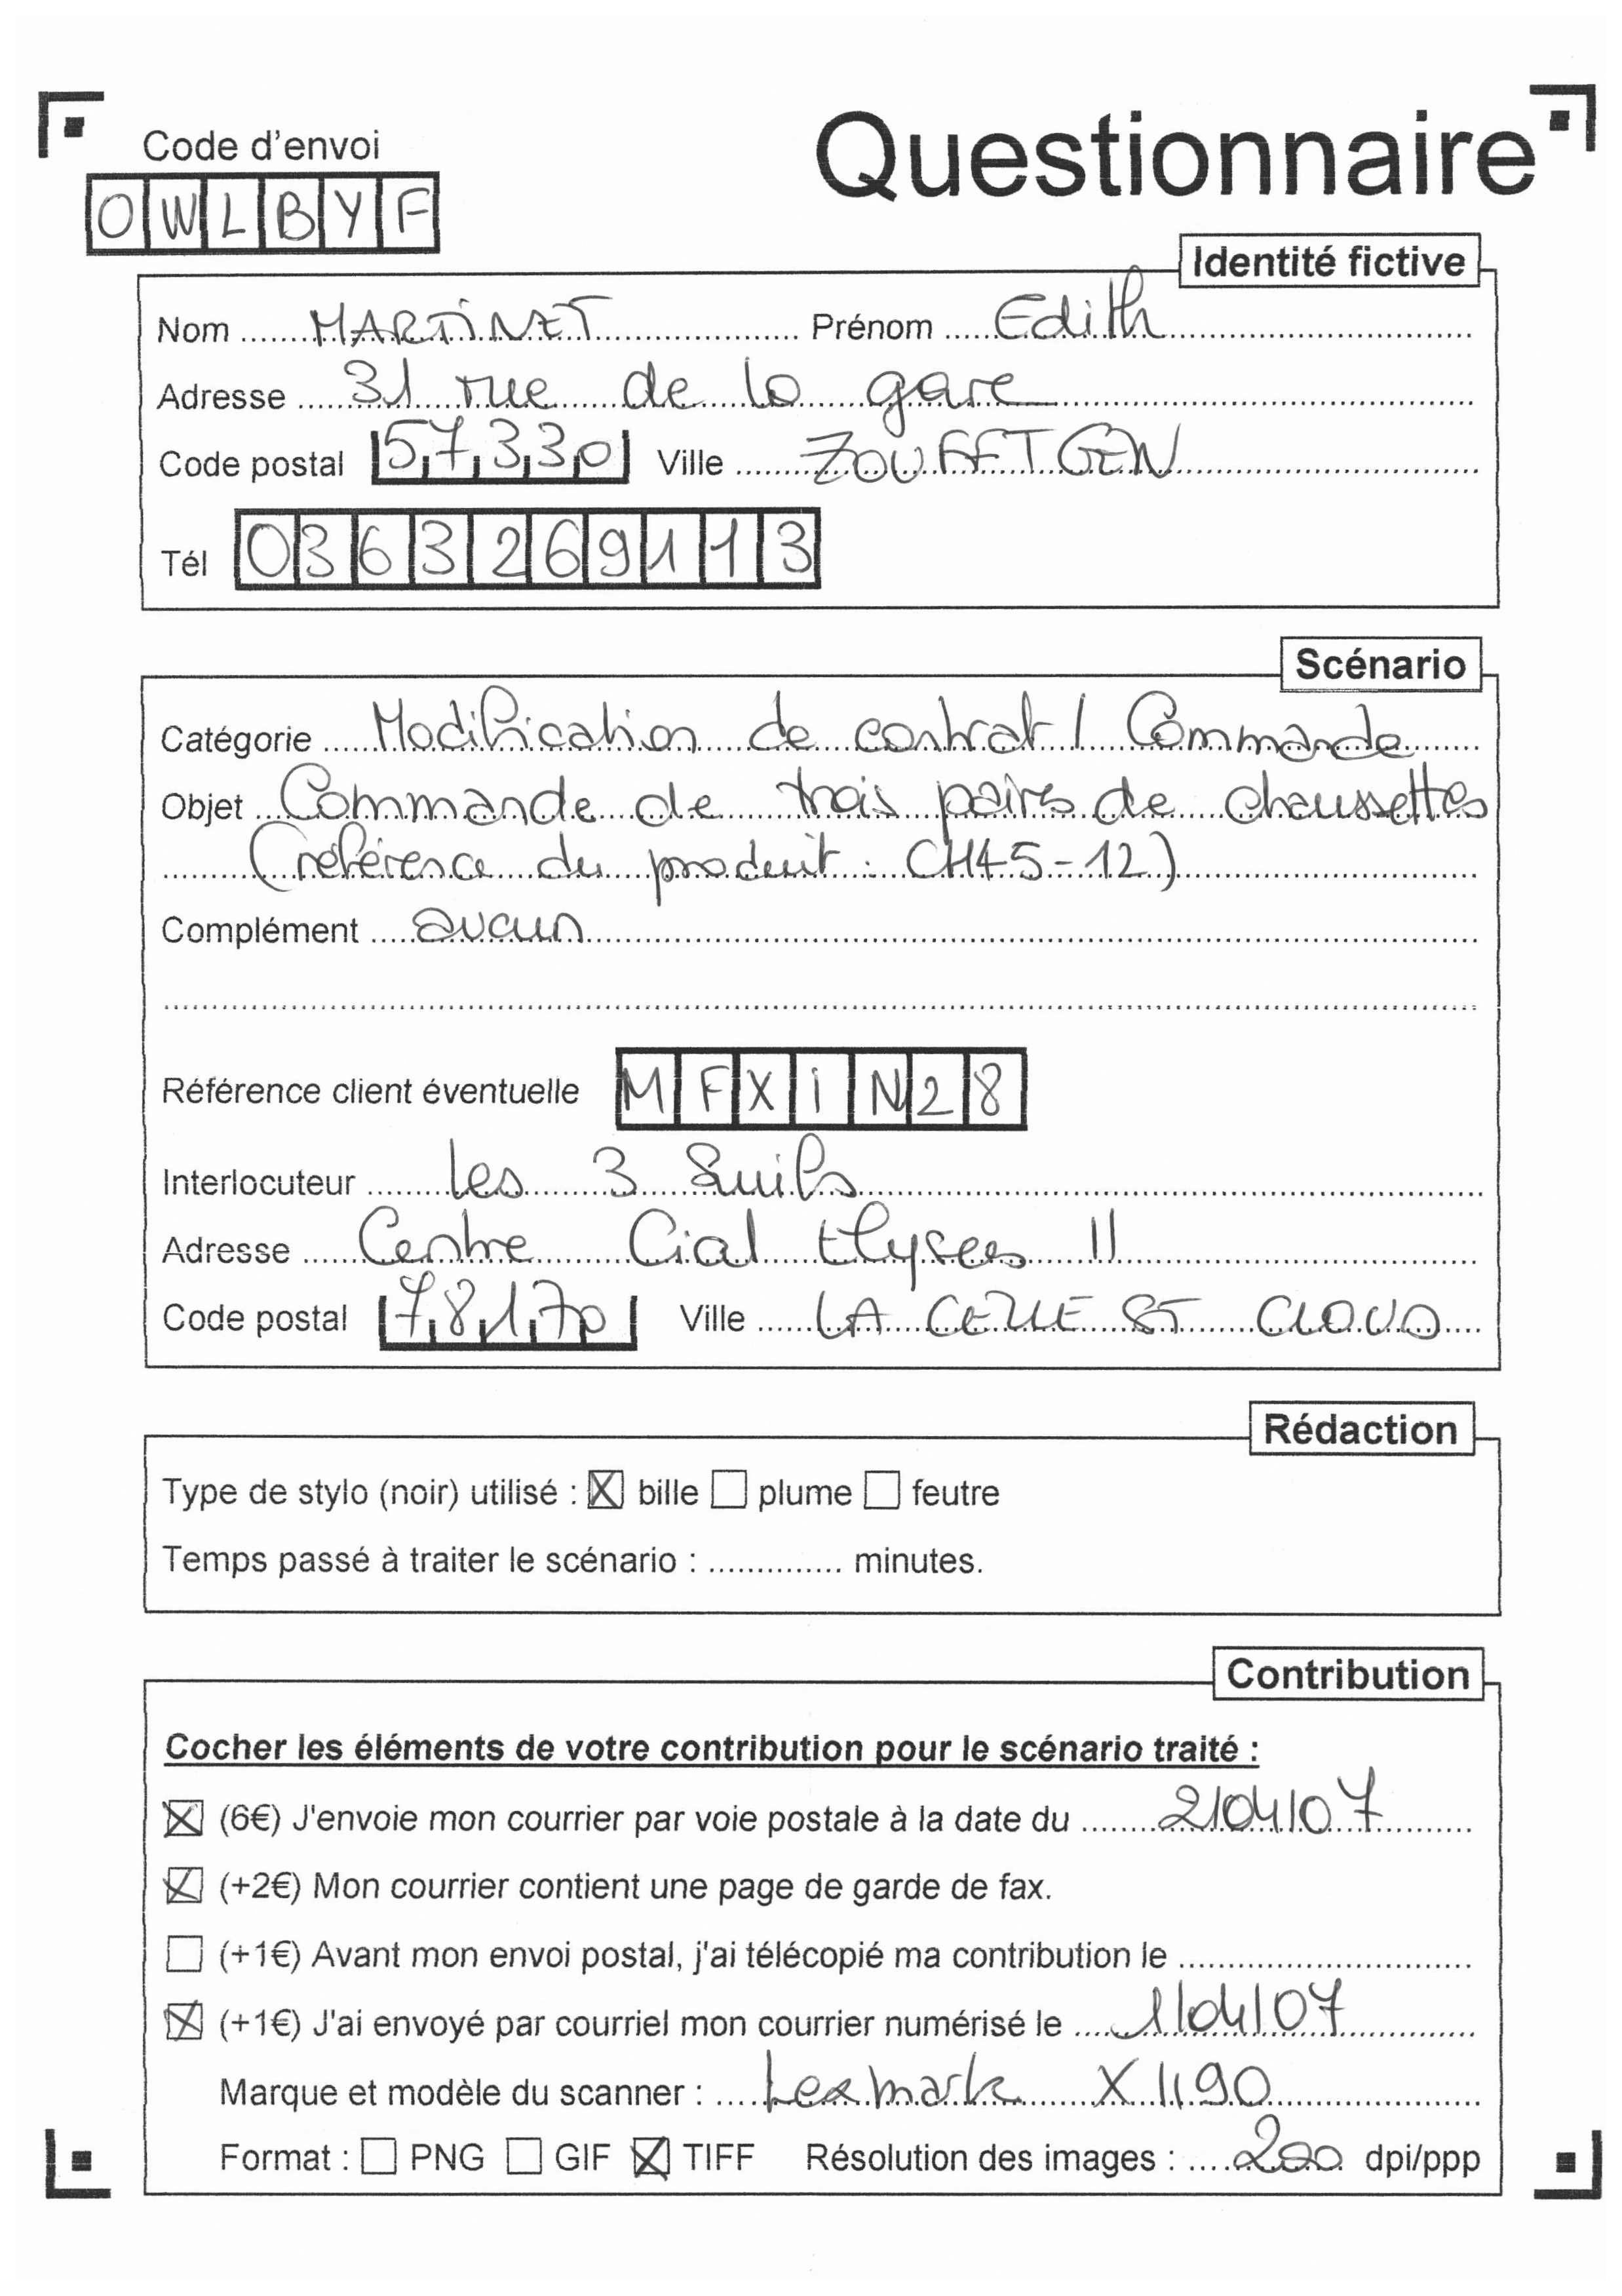 Code d'envoi
Questionnaire
OWLBYF
Identité fictive
Nom MARTINET Prénom Edith
Adresse 31 rue de la gare
Code postal 57330 Ville ZOUFFTGEN
Tél 0363269113
Scénario
Catégorie Modification de contrat / Commande
Objet Commande de trois paires de chaussettes
(référence du produit : CH45-12)
Complément aucun
Référence client éventuelle MFXIN28
Interlocuteur Les 3 Suiffs
Adresse Centre Cial Elysees II
Code postal 78170 Ville LA CELLE ST CLOUD
Rédaction
Type de stylo (noir) utilisé : ☒ bille ☐ plume ☐ feutre
Temps passé à traiter le scénario : .............. minutes.
Contribution
Cocher les éléments de votre contribution pour le scénario traité :
☒ (6€) J'envoie mon courrier par voie postale à la date du 2/04/07
☒ (+2€) Mon courrier contient une page de garde de fax.
☐ (+1€) Avant mon envoi postal, j'ai télécopié ma contribution le ..............
☒ (+1€) J'ai envoyé par courriel mon courrier numérisé le 1/04/07
Marque et modèle du scanner : Lexmark X1190
Format : ☐ PNG ☐ GIF ☒ TIFF Résolution des images : 200 dpi/ppp